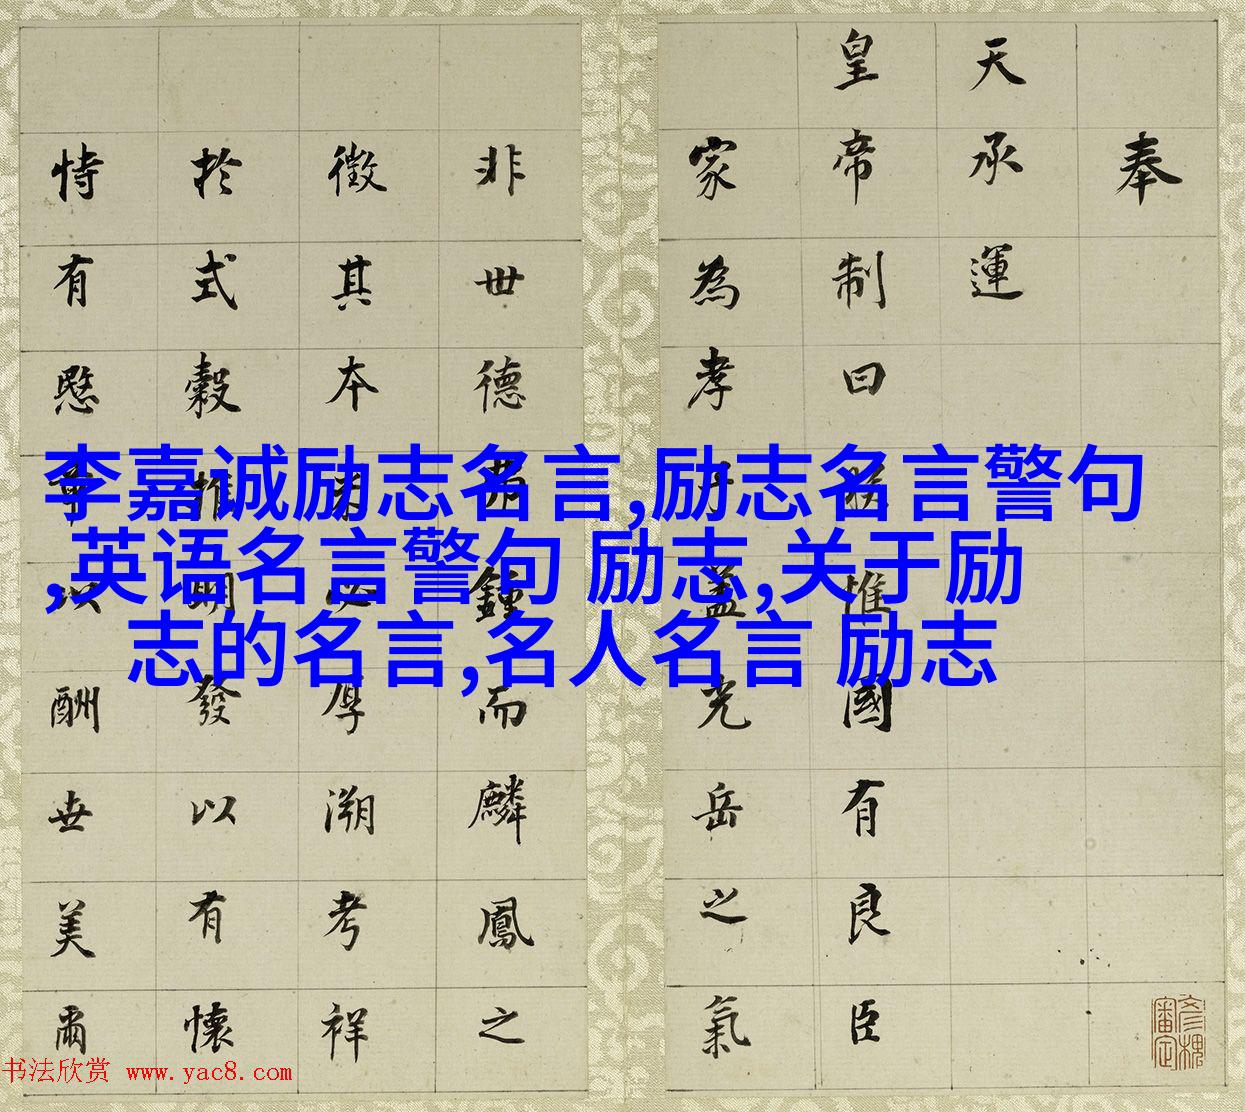 李嘉诚励志名言,励志名言警句
,英语名言警句 励志,关于励
志的名言,名人名言 励志
奉
天承運
皇帝制曰朕惟國有良臣
家為孝子蓋光岳之氣
非世德鍾而麟鳳之
徵其本必厚溯考祥
於式穀推明發以有懷
恃有愍章以酬世美爾
书法欣赏 www.yac8.com